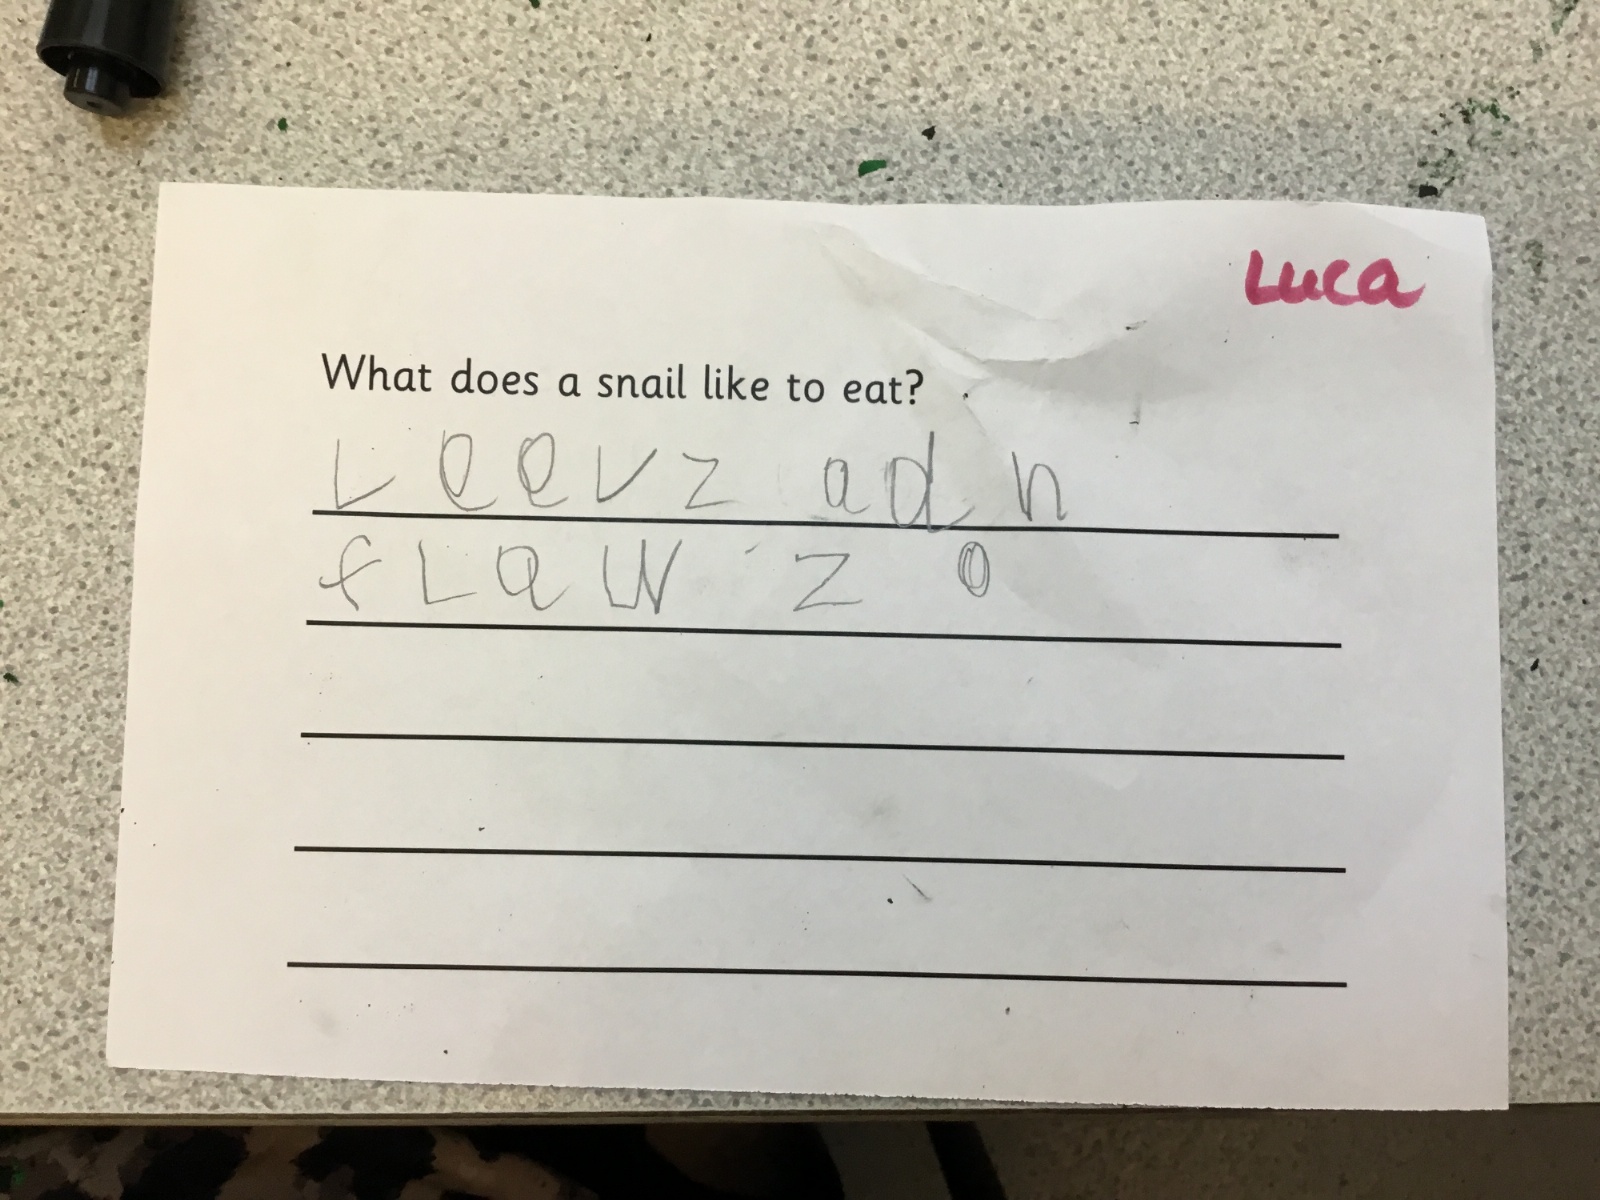 Luca
What does a snail like to eat?
Leevz adn
fLaw z o